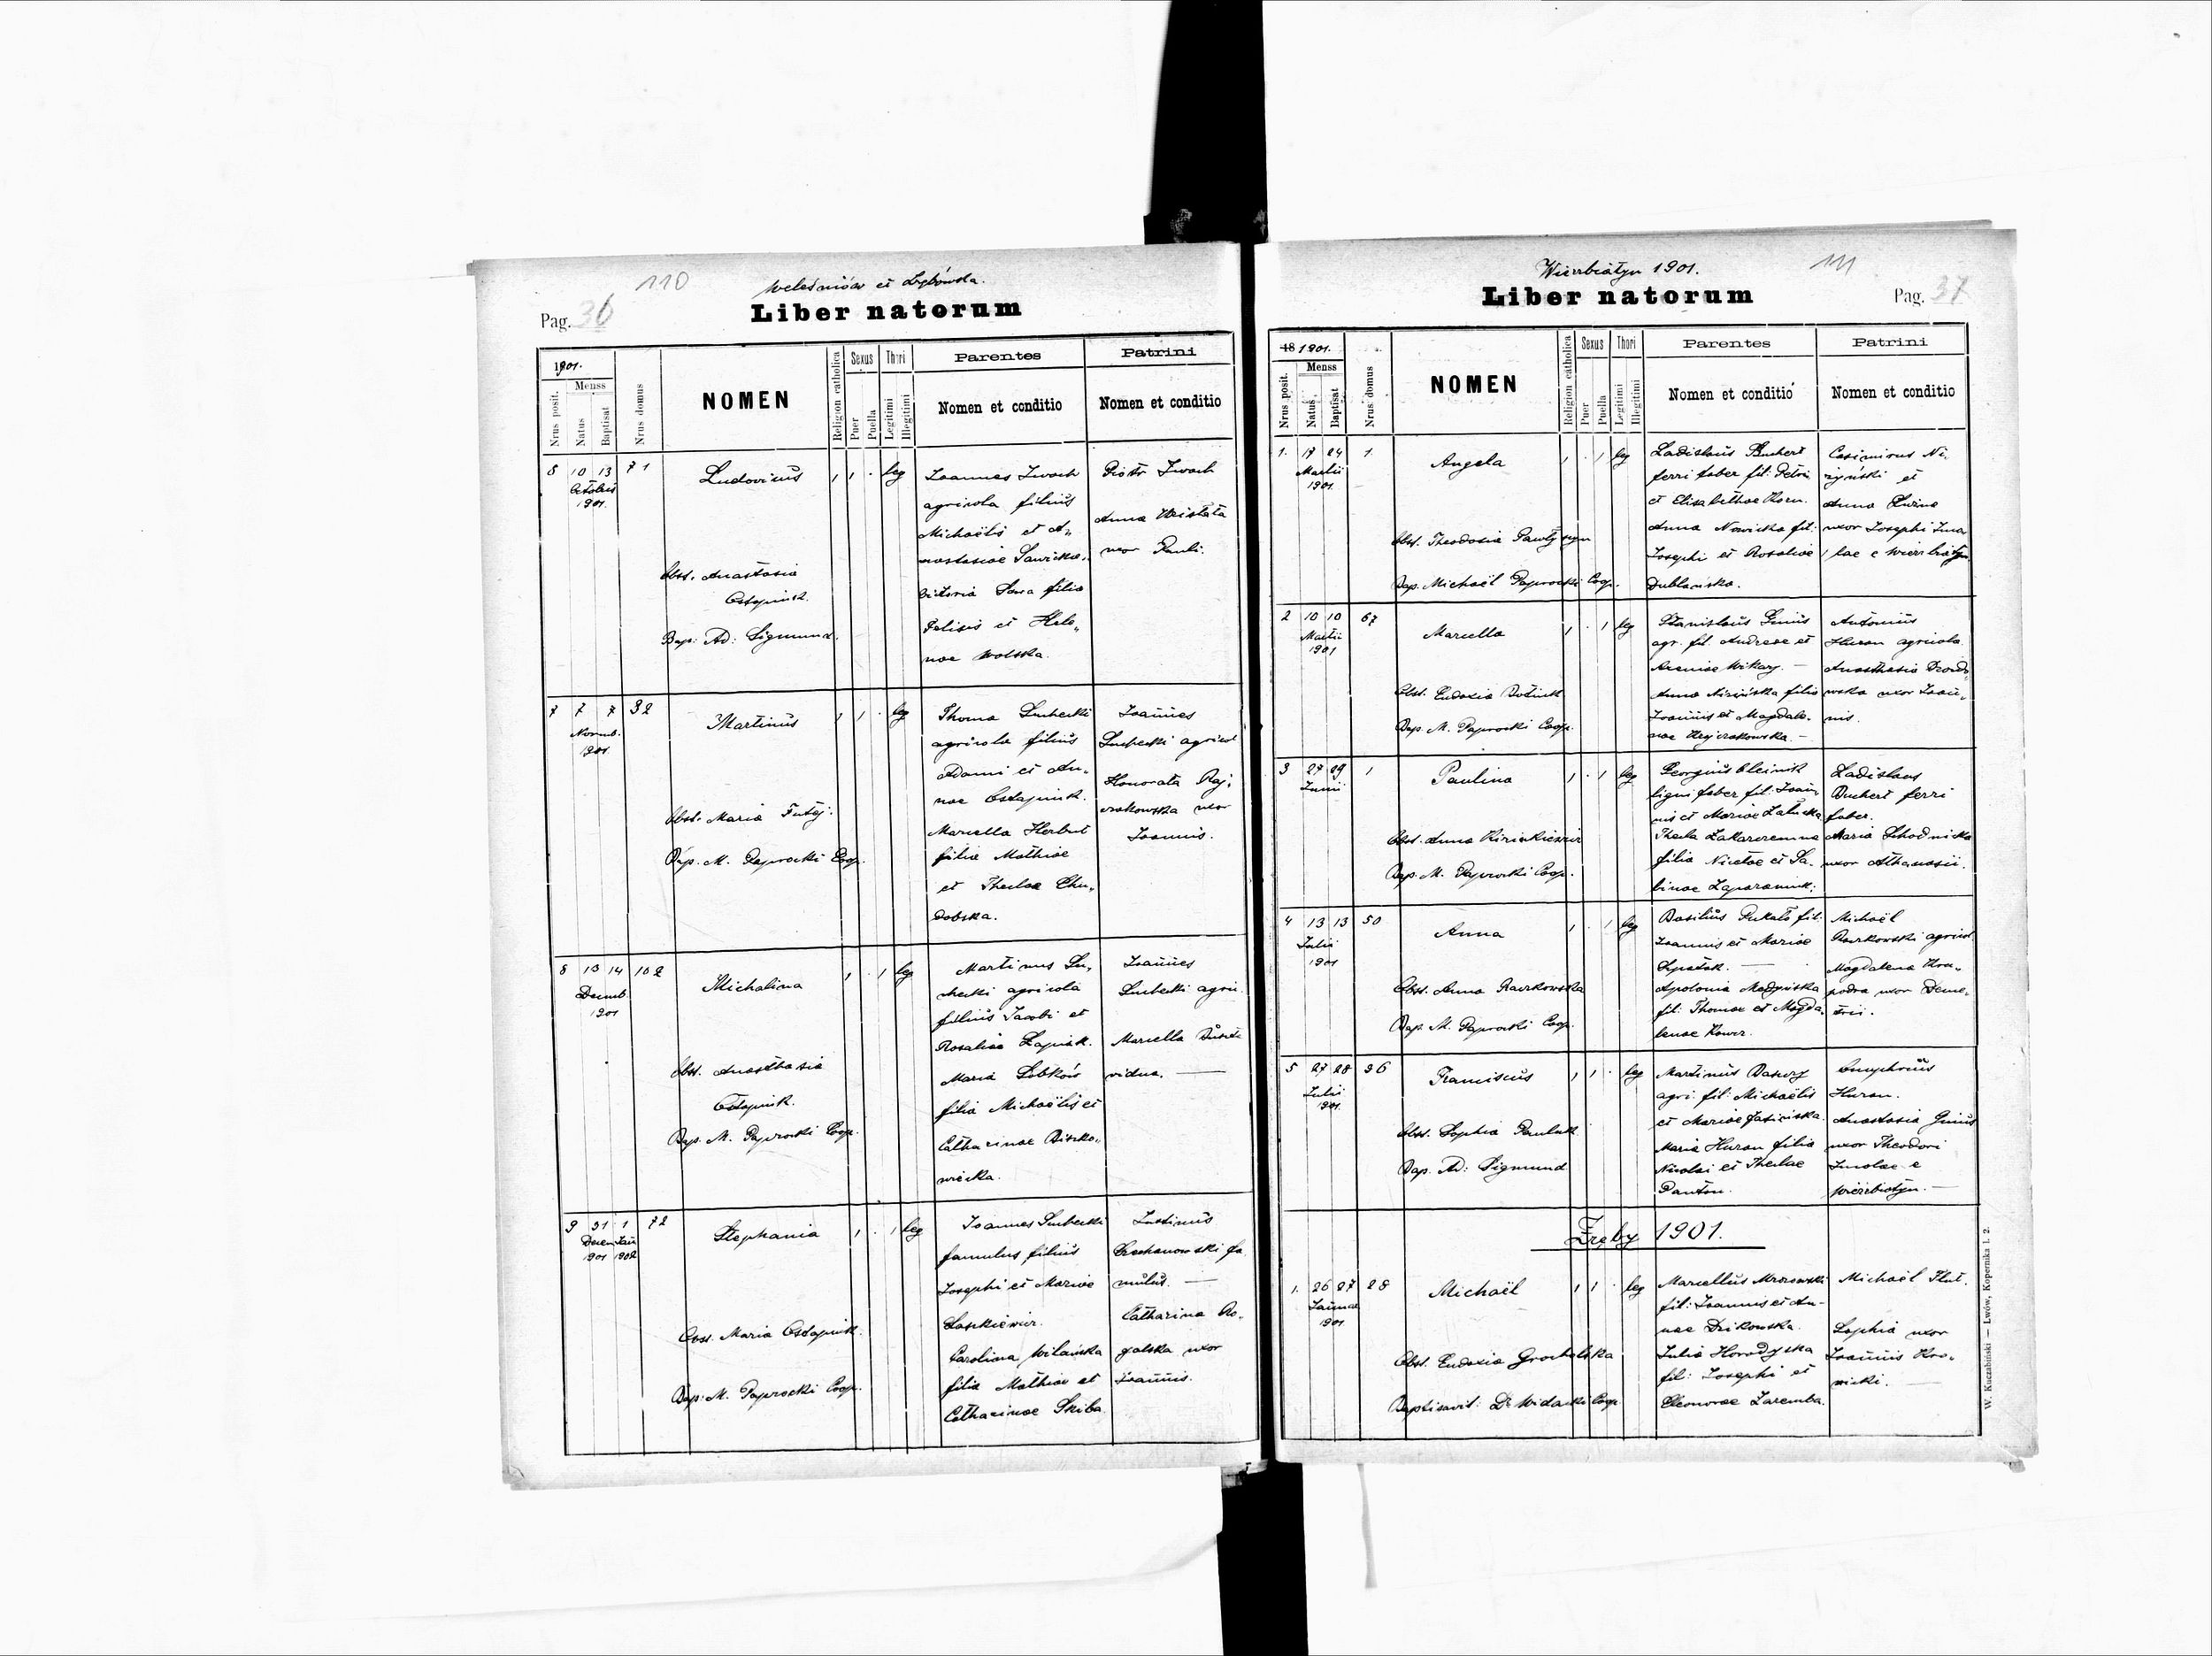 110
Pag. 36
Liber natorum
1901.
Nrus posit.
Menss
Natus
Baptisat
Nrus domus
NOMEN
Religion catholica
Sexus
Puer
Puella
Thori
Legitimi
Illegitimi
Parentes
Nomen et conditio
Patrini
Nomen et conditio
10 13
Octobris
1901.
71
Ludovicus
Obst. Anastasia
Ostapiuk.
Bap: Ad: Sigmund.
leg
Joannes Zwach
agricola filius
Michaëlis et A„
nastasiae
filia
Felicis et Hele„
nae Wolska.
Piotr Zwach
Anna
uxor Pauli.
7 7 7
Novemb.
1901.
32
Martinus
Obst. Maria Futyj.
Bap. M. Paprocki Coop.
leg
Thoma Suchecki
agricola filius
Adami et An„
nae Ostapiuk.
Marcella Herbut
filia Mathiae
et Theclae Chu„
dobska.
Joannes
Suchecki agricol
Honorata Raj„
czakowska uxor
Joannis.
8 13 14
Decemb.
1901
102
Michalina
Obst. Anasthasia
Ostapiuk.
Bap. M. Paprocki Coop.
leg
Martinus Su„
checki agricola
filius Jacobi et
Rosaliae Łapiuk.
Maria Sobków
filia Michaëlis et
Catharinae Biszko„
wiecka.
Joannes
Suchecki agri.
Marcella
vidua. —
9 31 1
Decem Jan
1901 1902
72
Stephania
Obst. Maria Ostapiuk.
Bap: M. Paprocki Coop.
leg
Joannes Suchecki
famulus filius
Josephi et Mariae
Laszkiewicz.
Carolina Wilańska
filia Mathiae et
Catharinae Skiba
Justinus
fa„
mulus. —
Catharina Ro„
galska uxor
Joannis.
Wierzbiatyn 1901.
111
Liber natorum
Pag. 37
18 1901.
Nrus posit.
Menss
Natus
Baptisat
Nrus domus
NOMEN
Religion catholica
Sexus
Puer
Puella
Thori
Legitimi
Illegitimi
Parentes
Nomen et conditio
Patrini
Nomen et conditio
1. 17 24
Martii
1901.
1.
Angela
Obst. Theodosia Pawłyszyn
Bap. Michaël Paprocki Coop.
leg
Ladislaus Buchert
ferri faber fil: Petri
et Elisabethae Horn.
Anna Nowicka fil:
Josephi et Rosaliae
Dublańska.
Casimirus Ni„
żyński et
Anna
uxor Josephi Inco
lae e Wierzbiatyn
2 10 10
Martii
1901
67
Marcella
Obst. Eudoxia
Bap. M. Paprocki Coop.
leg
Stanislaus Gnius
agr. fil. Andreae et
Xeniae Wikary. —
Anna Niżińska filia
Joannis et Magdale„
nae Rajczakowska. —
Antonius
Huran agricola
Anasthasia Drozdo„
wska uxor Joan„
nis.
3 27 29
Junii
1
Paulina
Obst. Anna Kiriakiewicz
Bap. M. Paprocki Coop.
leg
Georgius Olejnik
ligni faber fil: Joan„
nis et Mariae Załuska
Thecla
filia Nicetae et Sa„
binae Zaparaniuk.
Ladislaus
Buchert ferri
faber.
Maria Schodnicka
uxor Athanasii.
4 13 13
Julii
1901
50
Anna
Obst. Anna Raczkowska
Bap. M. Paprocki Coop.
leg
Basilius fil:
Joannis et Mariae
—
Apolonia Madyńska
fil: Thomae et Magda„
lenae Kower.
Michaël
Raczkowski agricol
Magdalena
uxor Deme„
trii.
5 27 28
Julii
1901.
36
Franciscus
Obst. Sophia Pauluk
Bap. Ad: Sigmund
leg
Martinus
agri. fil: Michaëlis
et Mariae Jasińska.
Maria Huran filia
Nicolai et Theclae
Panton.
Onuphrius
Huran.
Anastasia Gnius
uxor Theodori
Incolae e
Wierzbiatyn. —
Zręby 1901.
1. 26 27
Januar
1901.
28
Michaël
Obst. Eudoxia Grochalska
Baptisavit: Dr Widacki Coop
leg
Marcellus Mrozowski
fil: Joannis et An-
nae Dzikowska.
Julia Horodyska
fil: Josephi et
Eleonorae Zaremba.
Michaël Hut.
Sophia uxor
Joannis Kro„
nicki. —
W. Kuczabiński — Lwów, Kopernika l. 2.